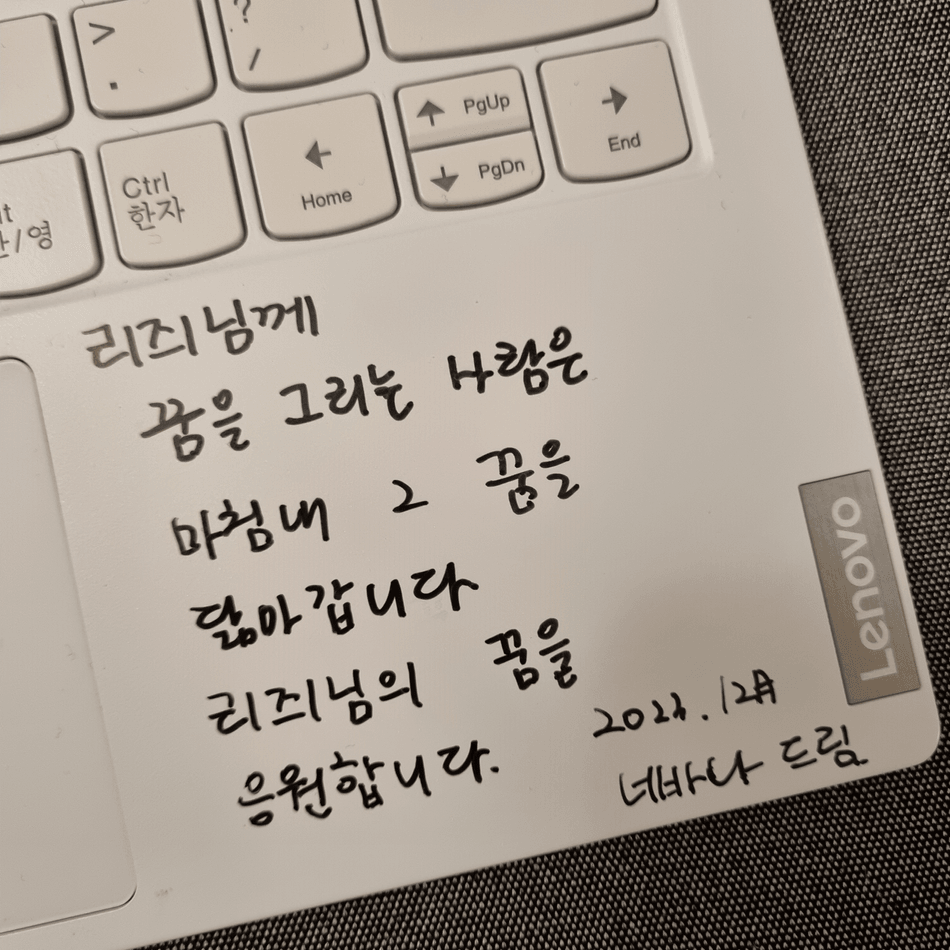 >
.
?
/
Ctrl
한자
/영
←
Home
↑ PgUp
↓ PgDn
→
End
리즤님께
꿈을 그리는 사람은
마침내 그 꿈을
닮아갑니다
리즤님의 꿈을
응원합니다.
12月
네바나 드림
Lenovo